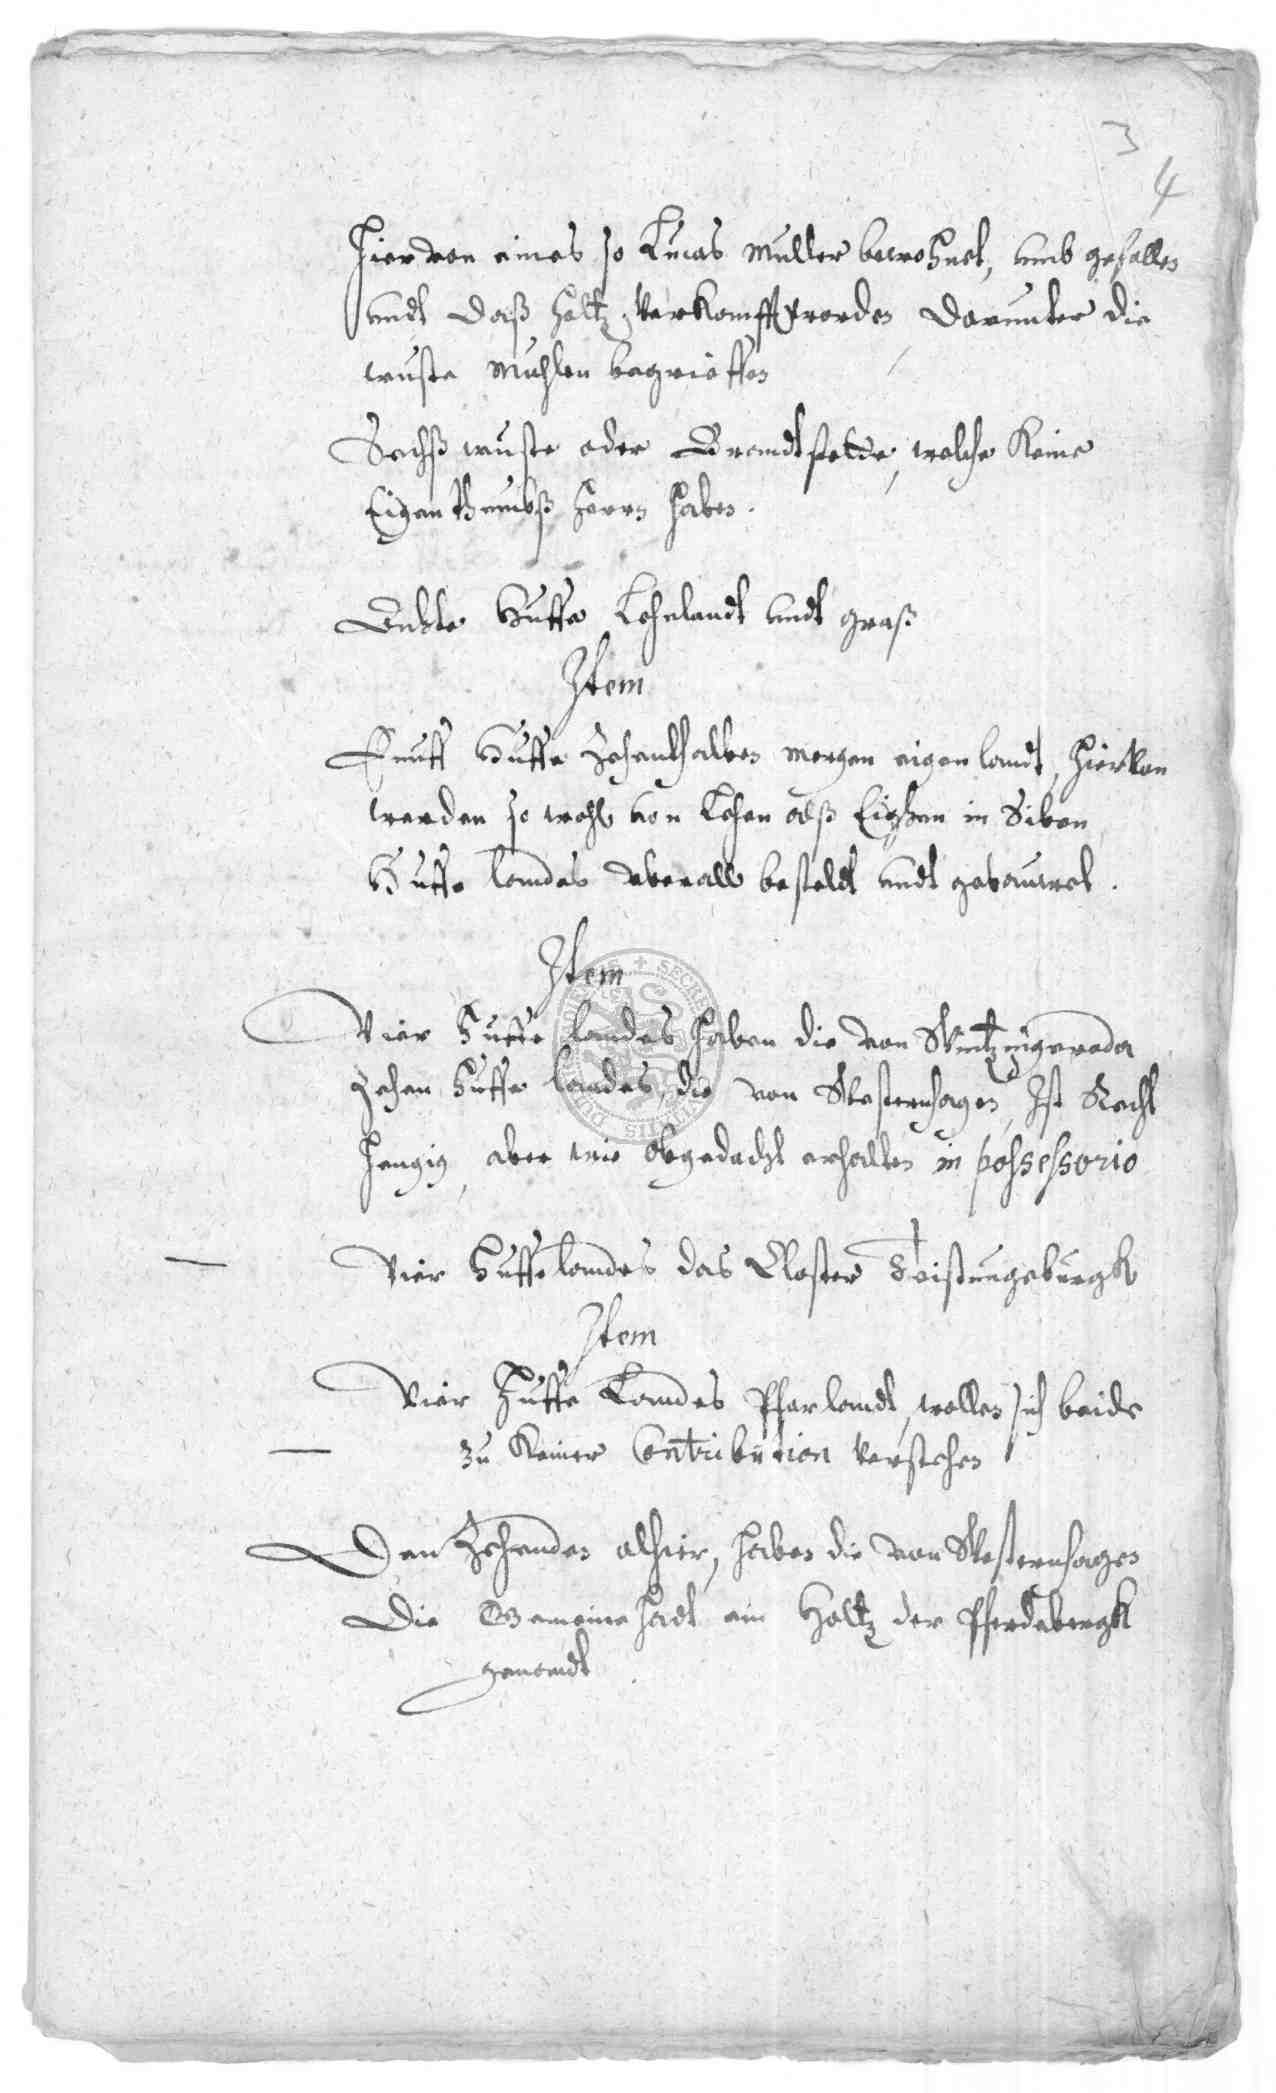 3
4
Hiervon eines so Lucas Muller bewohnet, umb gefallen
undt daß holtz verkaufft worden darunter die
wuste Muhlen begrieffen
Sechß wuste oder Brandtstette, welche Keine
Eigenthumbß Herrn haben.
Achte Huffe Lehnlandt undt graß
Item
Funff Huffe Zehenthalben morgen eigenlandt, hiervon
werden so wohl von Lehen alß Eigen in Siben
Huffe landes uberall besteldt undt gebauwet.
Item
Vier Huffe landes haben die von Wintzingeroda
Zehen Huffe landes, die von Westernhagen, Ist Recht
hengig, aber wie obgedacht erhalten in possessorio
Vier Huffe landes das Closter Teistungeburgk
Item
Vier Huffe Landes Pfarlandt, wollen sich beide
zu Keiner Contribution verstehen
Den Zehenden alhier, haben die von Westernhagen
Die Gemeine hadt ein Holtz der Pferdebergk
genandt